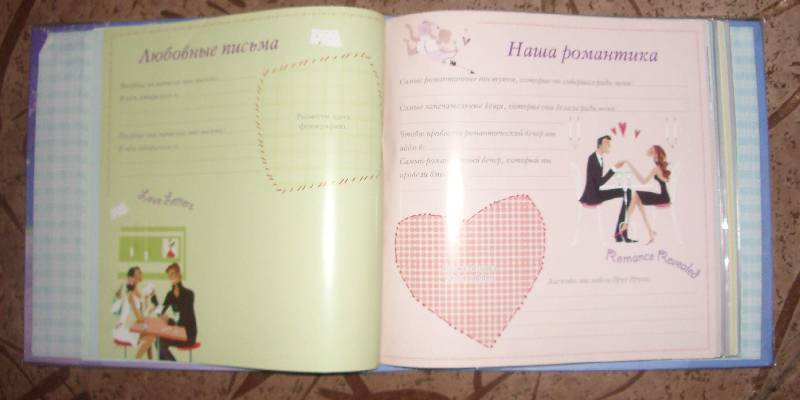 Любовные письма
В нём говорилось о:
Поместите здесь
фотографию
В нём говорилось о:
Love Letters
Наша романтика
Самые романтичные поступки, которые он совершил ради меня:
Самые замечательные вещи, которые она делала ради меня:
Чтобы провести романтический вечер мы
Самый романтичный вечер, который мы
провели
Romance Revealed
Ласково мы звали друг друга: